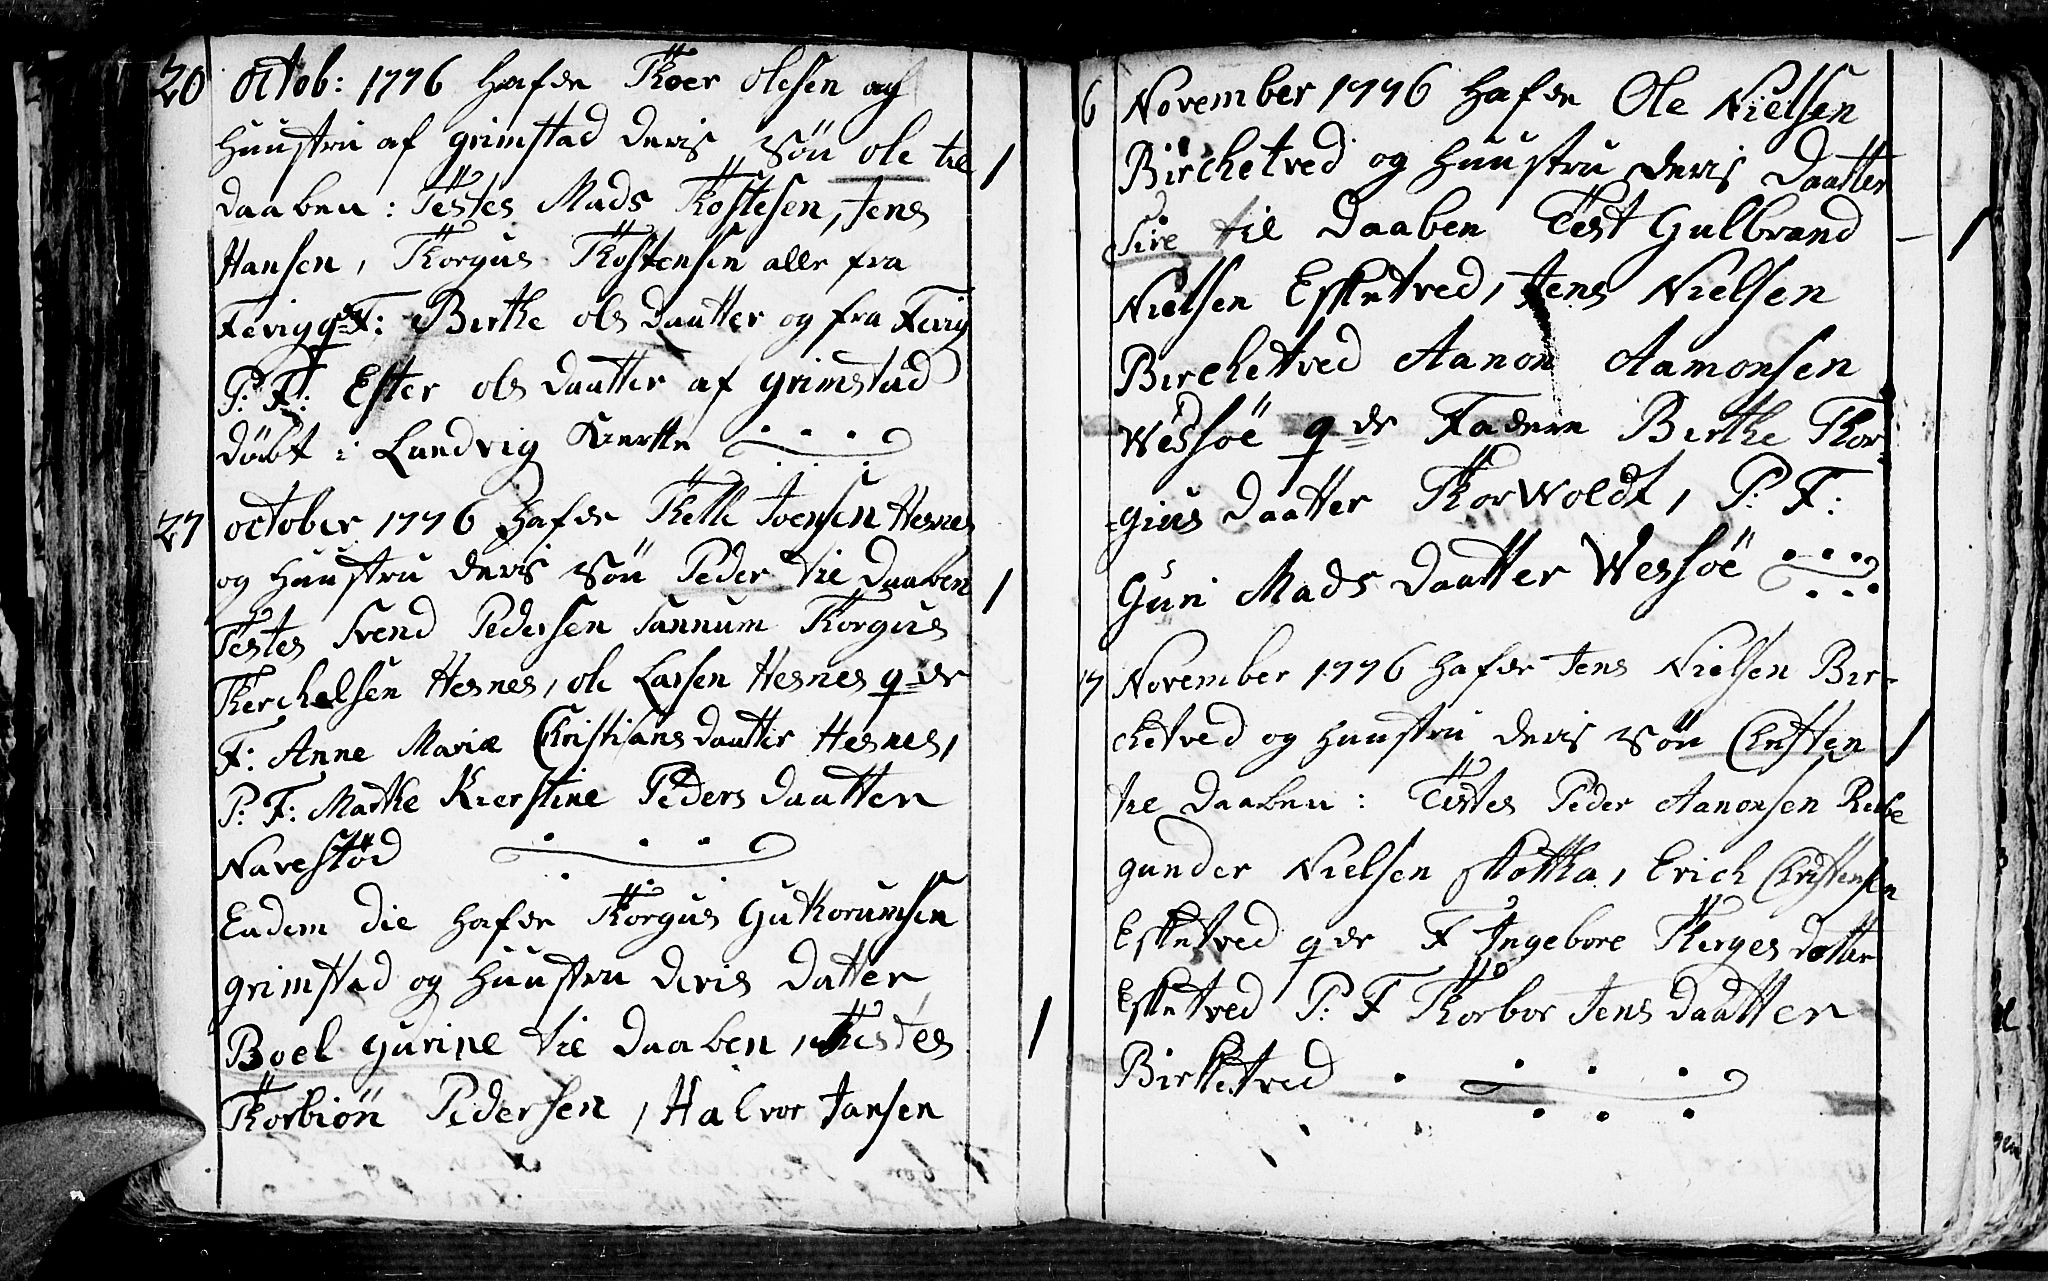 20 octob: 1776 hafde Thoer olesen og
huustru af grimstad deris Sön ole til
daaben: Testes Mads Thostesen, Jens
Hansen, Thorgus Thostensen alle fra
Fevig qde F: Birthe ols daatter og fra Fevig
P: F: Ester ols daatter af grimstad
döbt i Landvig Kierke
27 october 1776 hafde Thelle Joensen Hesnes
og Huustru deris Sön Peder til Daaben
Testes Svend Pedersen Sannum Thorgus
Therchelsen Hesnes, ole Larsen Hesnes qde
F: Anne Maria Christians daatter Hesnes,
P: F: Marthe Kierstine Peders daatter
Navestöd
Eadem die hafde Thorgus Guthorumsen
grimstad og Huustru deris datter
Boel gurine til daaben, Testes
Thorbiön Pedersen, Halvor Jansen
6 November 1776 hafde Ole Nielsen
Birchetved og huustru deris daatter
Sire til daaben Test Gulbrand
Nielsen Esketved, Jens Nielsen
Birchetved Aanon Aamonsen
Wessöe qde Fadere Birthe Thor-
-gius daatter Thorwoldt, P: F:
Guri Mads daatter Wessöe
17 November 1776 hafde Jens Nielsen Bir-
chetved og huustru deris Sön Christen
til daaben: Testes Peder Aanonsen Reibe
gunder Nielsen Erich Christensen
Esketved qde F Ingebore Therges dotter
Esketved P: F Thorbor Jens daatter
Birketved